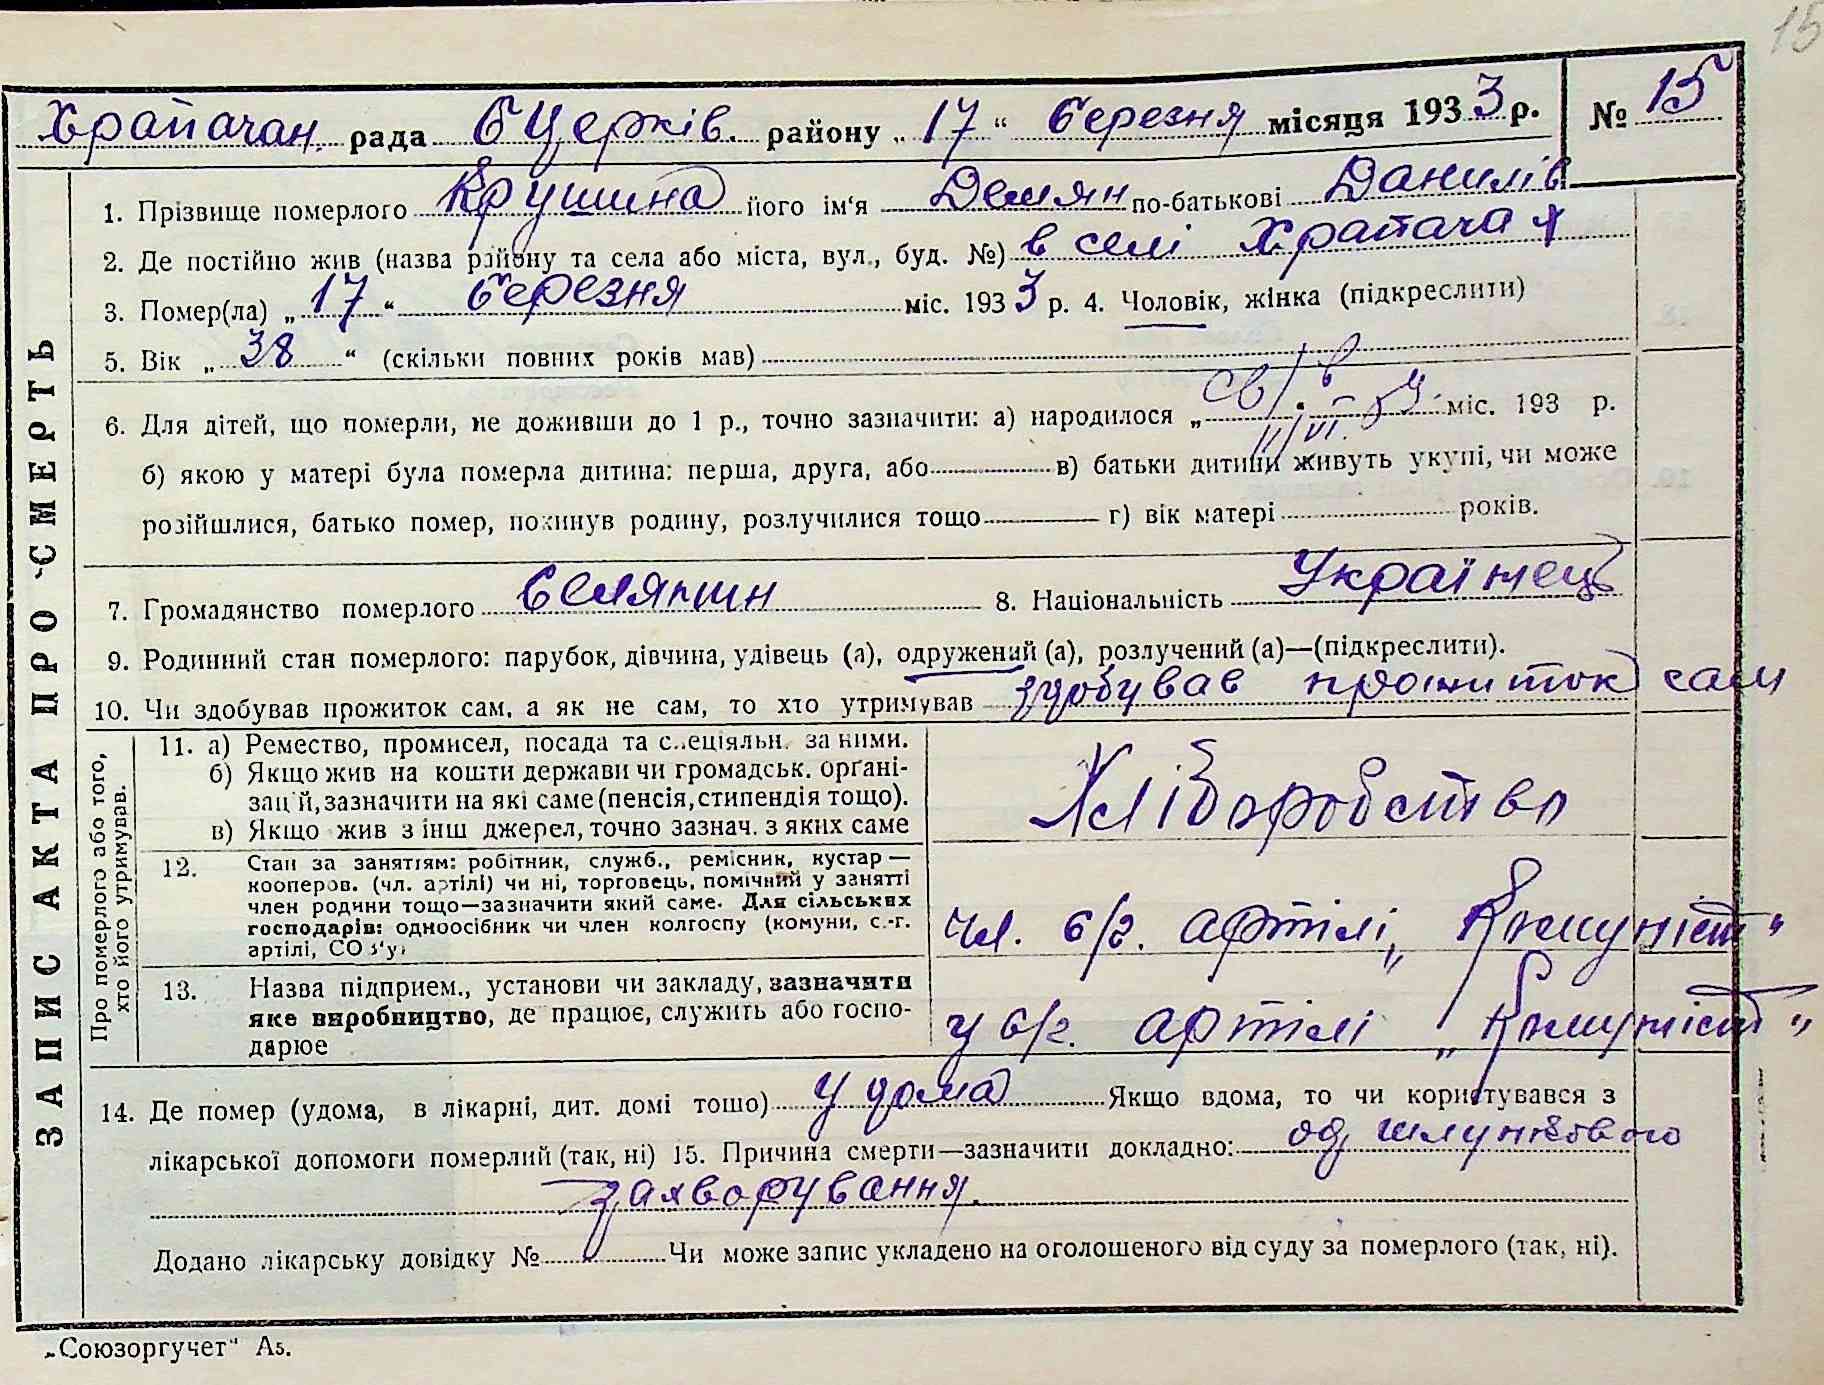 15
Храпачан. рада Б Церків. району „17“ березня місяця 1933 р. № 15
ЗАПИС АКТА ПРО СМЕРТЬ
1. Прізвище померлого Крушина його ім'я Демян по-батькові Данилів
2. Де постійно жив (назва району та села або міста, вул., буд. №) в селі Храпачах
3. Помер(ла) „17“ березня міс. 1933 р. 4. Чоловік, жінка (підкреслити)
5. Вік „38“ (скільки повних років мав)
6. Для дітей, що померли, не доживши до 1 р., точно зазначити: а) народилося „ міс. 193 р.
б) якою у матері була померла дитина: перша, друга, або в) батьки дитини живуть укупі, чи може
розійшлися, батько помер, покинув родину, розлучилися тощо г) вік матері років.
7. Громадянство померлого селянин 8. Національність Українець
9. Родинний стан померлого: парубок, дівчина, удівець (а), одружений (а), розлучений (а)—(підкреслити).
10. Чи здобував прожиток сам, а як не сам, то хто утримував здобував прожиток сам
Про померлого або того, хто його утримував.
11. а) Ремество, промисел, посада та спеціяльн. за ними.
б) Якщо жив на кошти держави чи громадськ. орґані-
зацій, зазначити на які саме (пенсія, стипендія тощо).
в) Якщо жив з інш джерел, точно зазнач. з яких саме
Хліборобство
12. Стан за заняттям: робітник, служб., ремісник, кустар —
кооперов. (чл. артілі) чи ні, торговець, помічний у занятті
член родини тощо—зазначити який саме. Для сільських
господарів: одноосібник чи член колгоспу (комуни, с.-г.
артілі, СОЗ'у)
чл. с/г. артілі „Комуніст“
13. Назва підприєм., установи чи закладу, зазначити
яке виробництво, де працює, служить або госпо-
дарює
у с/г. артілі „Комуніст“
14. Де помер (удома, в лікарні, дит. домі тощо) у дома Якщо вдома, то чи користувався з
лікарської допомоги померлий (так, ні) 15. Причина смерти—зазначити докладно: од шлункового
захворування.
Додано лікарську довідку № Чи може запис укладено на оголошеного від суду за померлого (так, ні).
„Союзоргучет“ А5.